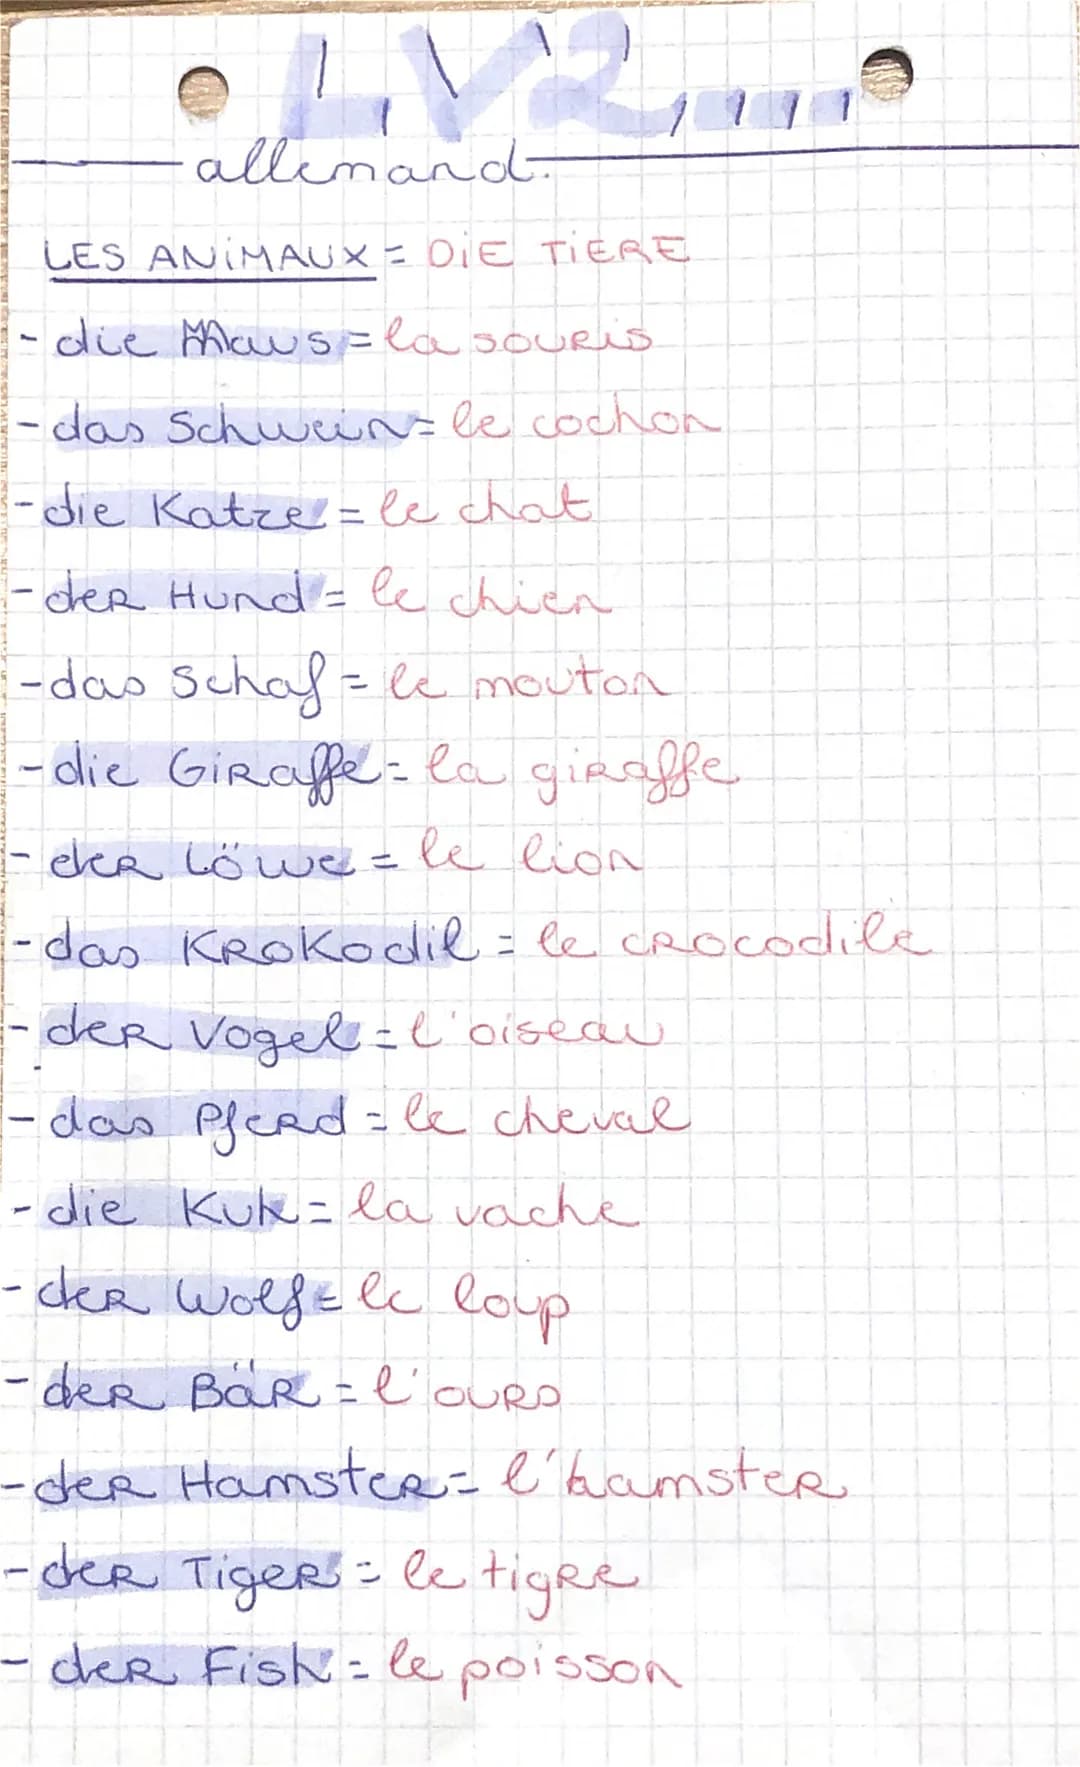 LV2
allemand.
LES ANiMAUX = DiE TiERE
- die Maus = la souris
- das Schwein = le cochon
- die Katze = le chat
- der Hund = le chien
- das Schaf = le mouton
- die Giraffe = la giraffe
- der Löwe = le lion
- das Krokodil = le crocodile
- der Vogel = l'oiseau
- das Pferd = le cheval
- die Kuh = la vache
- der Wolf = le loup
- der Bär = l'ours
- der Hamster = l'hamster
- der Tiger = le tigre
- der Fish = le poisson